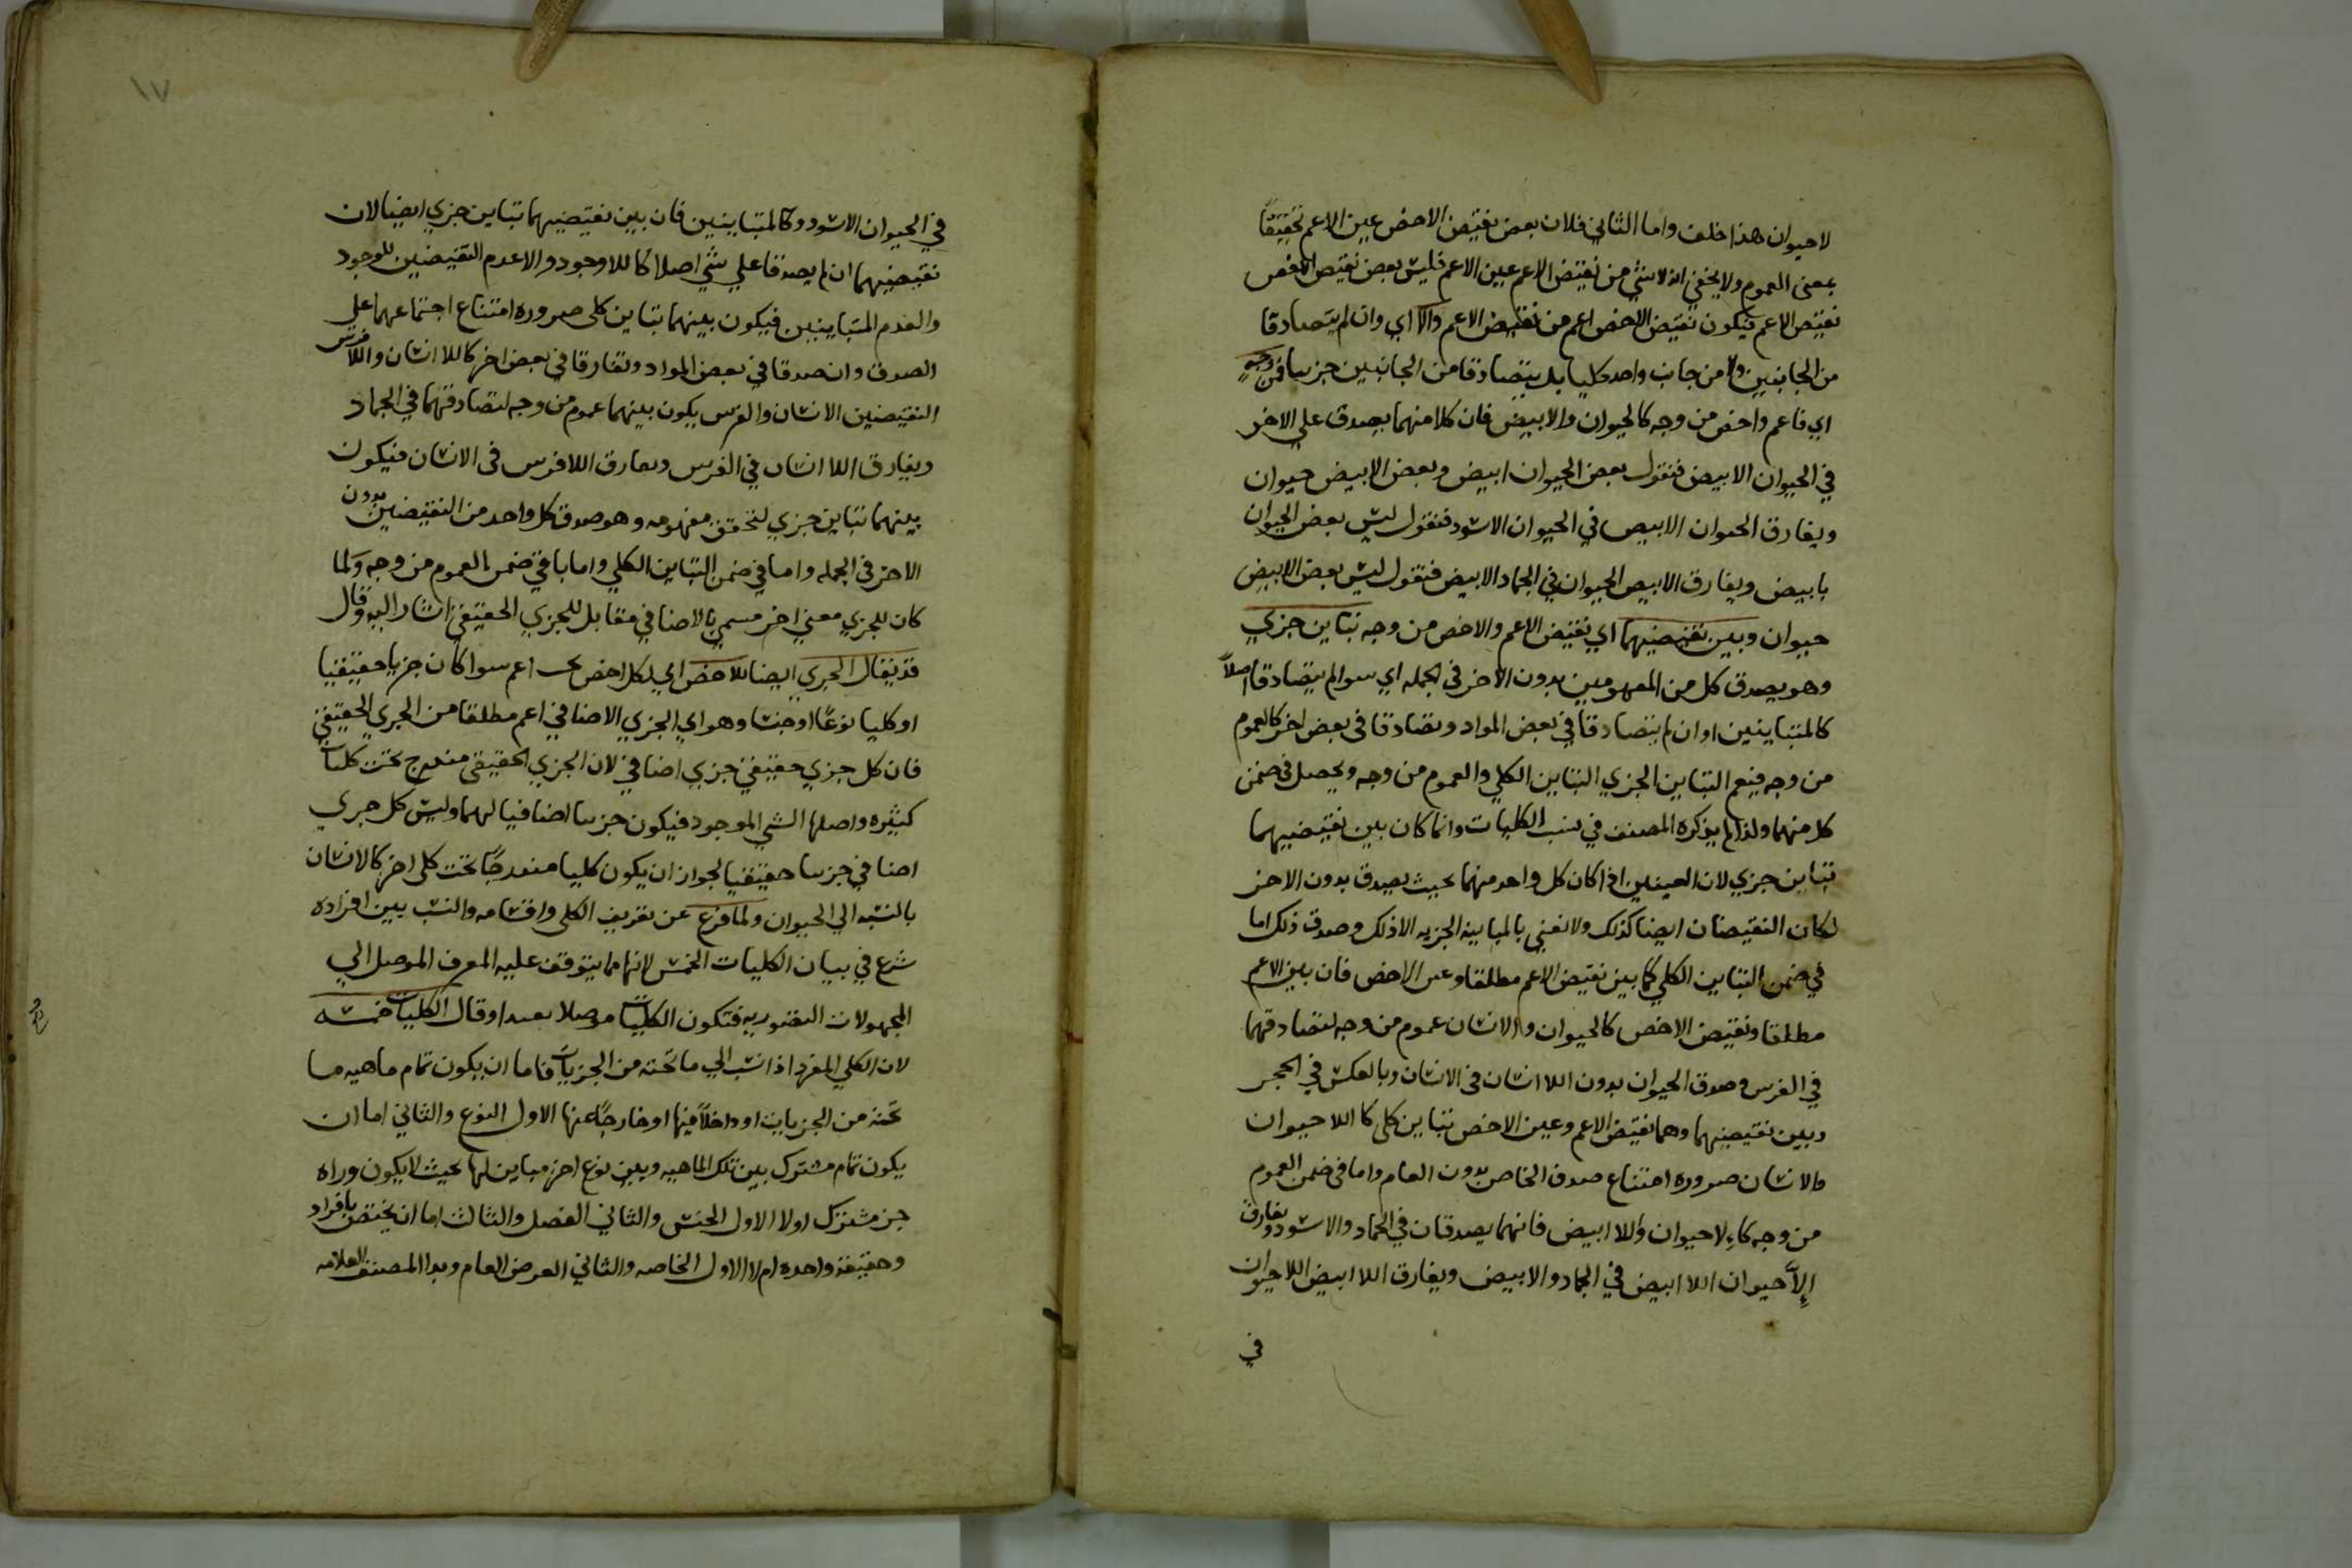 لاحيوان هذا خلف واما الثاني فلان بعض نقيض الاخص عين الاعم تحقيقًا
بمعنى العموم ولا يخفي انه لا شي من نقيض الاعم عين الاعم فليس بعض نقيض الاخص
نقيض الاعم فيكون نقيض الاخص اعم من نقيض الاعم والا اي وان لم يتصادقا
من الجانبين ولا من جانب واحد كليا بل يتصادقا من الجانبين جزييا فمن وجهٍ
اي فاعم واخص من وجه كالحيوان والابيض فان كلا منهما يصدق على الاخر
في الحيوان الابيض فنقول بعض الحيوان ابيض وبعض الابيض حيوان
ويفارق الحيوان الابيض في الحيوان الاسود فنقول ليس بعض الحيوان
بابيض ويفارق الابيض الحيوان في الجماد الابيض فنقول ليس بعض الابيض
حيوان وبين نقيضيهما اي نقيض الاعم والاخص من وجه تباين جزي
وهو يصدق كل من المفهومين بدون الاخر في الجمله اي سوا لم يتصادقا اصلًا
كالمتباينين او ان لم يتصادقا في بعض المواد وتصادقا في بعض اخر كالعموم
من وجه فيعم التباين الجزي التباين الكلي والعموم من وجه ويحصل في ضمن
كل منهما ولذا لم يذكره المصنف في نسب الكليات وانما كان بين نقيضيهما
تباين جزي لان العينين اذا كان كل واحد منهما بحيث يصدق بدون الاخر
لكان النقيضان ايضا كذلك ولا نعني بالمباينه الجزيه الا ذلك وصدق ذلك اما
في ضمن التباين الكلي كما بين نقيض الاعم مطلقا وعين الاخص فان بين الاعم
مطلقا ونقيض الاخص كالحيوان والا انسان عموم من وجه لتصادقهما
في الفرس وصدق الحيوان بدون اللا انسان في الانسان وبالعكس في الحجر
وبين نقيضيهما وهما نقيض الاعم وعين الاخص تباين كلي كا اللا حيوان
والانسان ضروره امتناع صدق الخاص بدون العام واما في ضمن العموم
من وجه كا لا حيوان واللا ابيض فانهما يصدقان في الجماد والاسود ويفارق
الاَّ حيوان اللا ابيض في الجماد والابيض ويفارق اللا ابيض اللا حيوان
في
١٧
في الحيوان الاسود وكالمتباينين فان بين نقيضيهما تباين جزي ايضا لان
نقيضيهما ان لم يصدقا علي شي اصلا كا للا وجود والاعدم النقيضين للوجود
والعدم المتباينين فيكون بينهما تباين كلي ضروره امتناع اجتماعهما علي
الصدق وان صدقا في بعض المواد وتفارقا في بعض اخر كا للا انسان واللا فرس
النقيضين الانسان والفرس يكون بينهما عموم من وجه لتصادقهما في الجماد
ويفارق اللا انسان في الفرس ويفارق اللا فرس في الانسان فيكون
بينهما تباين جزي لتحقق مفهومه وهو صدق كل واحد من النقيضين بدون
الاخر في الجمله واما في ضمن التباين الكلي واما با في ضمن العموم من وجه ولما
كان للجزي معني اخر مسمي بالاضافي مقابل للجزي الحقيقي اشار اليه وقال
قد يقال الجزي ايضا للاخص اي لكل اخص تحت اعم سوا كان جزيا حقيقيا
او كليا نوعًا او جنسا وهو اي الجزي الاضافي اعم مطلقا من الجزي الحقيقي
فان كل جزي حقيقي جزي اضافي لان الجزي الحقيقي مندرج تحت كليات
كثيره واصلها الشي الموجود فيكون جزييا اضافيا لهما وليس كل جزي
اضافي جزييا حقيقيا لجواز ان يكون كليا مندرجًا تحت كلي اخر كالانسان
بالنسبه الي الحيوان ولما فرغ عن تعريف الكلي واقسامه والنسب بين افراده
شرع في بيان الكليات الخمس لانها مما يتوقف عليه المعرف الموصل الي
المجهولات التصوريه فتكون الكليات موصلا بعيدا وقال الكليات خمسه
لان الكلي المفرد اذا نسب الي ما تحته من الجزيات فاما ان يكون تمام ماهيه ما
تحته من الجزيات او داخلاً فيها او خارجًا عنها الاول النوع والثاني اما ان
يكون تمام مشترك بين تلك الماهيه وبين نوع اخر مباين لها بحيث لا يكون وراه
جز مشترك اولا الاول الجنس والثاني الفصل والثالث اما ان يختص بافراد
وحقيقه واحده ام لا الاول الخاصه والثاني العرض العام وبدا المصنف العلامه